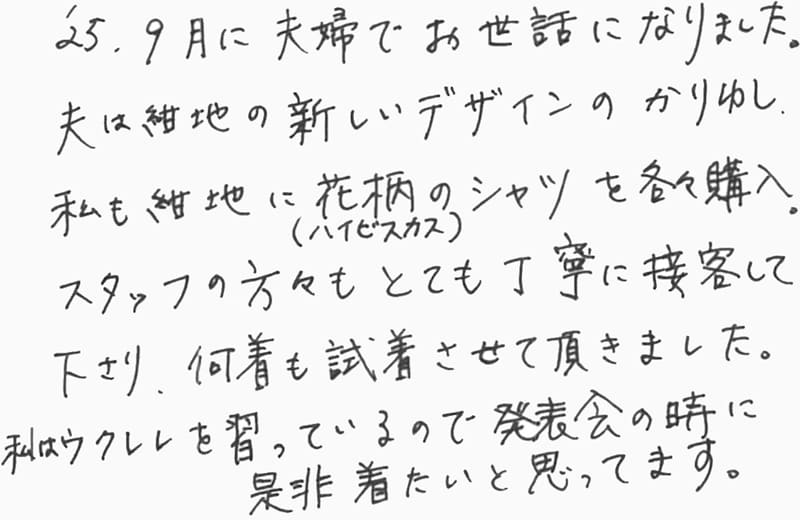 '25. 9月に夫婦でお世話になりました。
夫は紺地の新しいデザインのかりゆし、
私も紺地に花柄のシャツを各々購入。
(ハイビスカス)
スタッフの方々もとても丁寧に接客して
下さり、何着も試着させて頂きました。
私はウクレレを習っているので発表会の時に
是非着たいと思ってます。